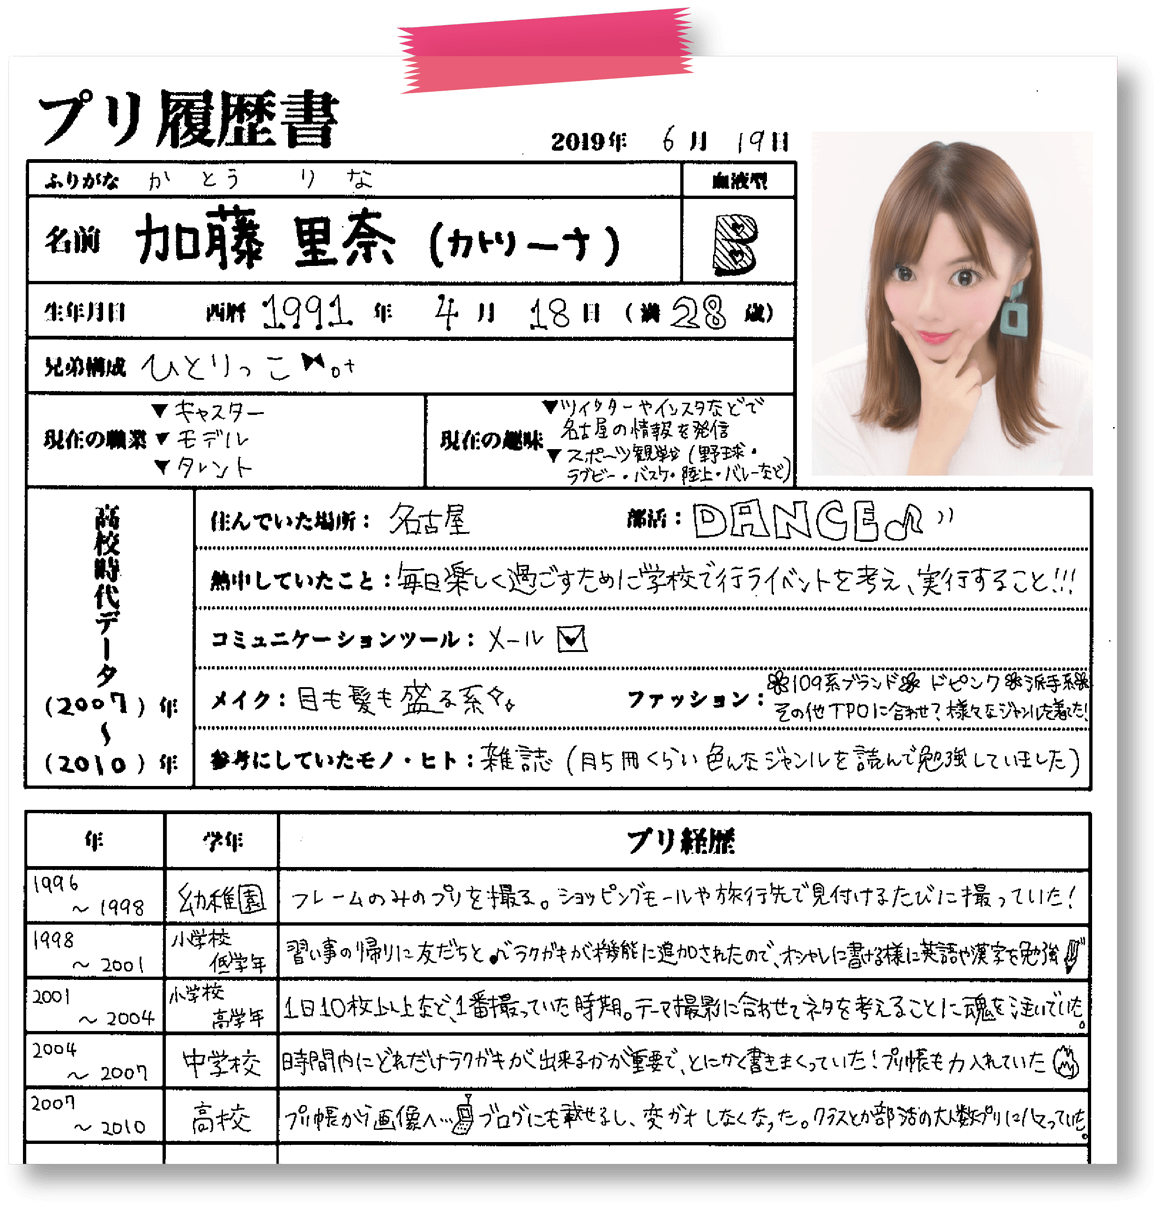 プリ履歴書
2019年 6月 19日
ふりがな かとう りな
血液型
名前 加藤 里奈 (カトリーナ)
B
生年月日 西暦 1991年 4月 18日 (満 28歳)
兄弟構成 ひとりっこ
現在の職業
▼キャスター
▼モデル
▼タレント
現在の趣味
▼ツイッターやインスタなどで
名古屋の情報を発信
▼スポーツ観戦(野球・
ラグビー・バスケ・陸上・バレーなど)
高校時代データ
(2007)年
〜
(2010)年
住んでいた場所：名古屋 部活：DANCE♪
熱中していたこと：毎日楽しく過ごすために学校で行うイベントを考え、実行すること!!!
コミュニケーションツール：メール
メイク：目も髪も盛る系
ファッション：109系ブランド ドピンク 派手系
その他TPOに合わせて様々なジャンルを着てた!
参考にしていたモノ・ヒト：雑誌(月5冊くらい色んなジャンルを読んで勉強していました)
年 学年 プリ経歴
1996〜1998 幼稚園 フレームのみのプリを撮る。ショッピングモールや旅行先で見付けるたびに撮っていた!
1998〜2001 小学校低学年 習い事の帰りに友だちと♪ラクガキが機能に追加されたので、オシャレに書ける様に英語や漢字を勉強
2001〜2004 小学校高学年 1日10枚以上など、1番撮っていた時期。テーマ撮影に合わせてネタを考えることに魂を注いでいた。
2004〜2007 中学校 時間内にどれだけラクガキが出来るかが重要で、とにかく書きまくっていた!プリ帳も力入れていた
2007〜2010 高校 プリ帳から画像へ…ブログにも載せるし、変ガオしなくなった。クラスとか部活の大人数プリにハマっていた。